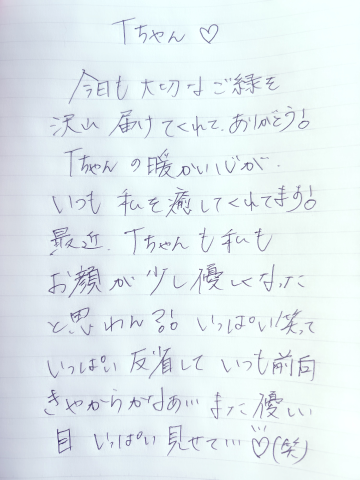 Tちゃん ♡
今日も 大切な ご縁を
沢山 届けてくれて、ありがとう!
Tちゃん の 暖かい心が、
いつも 私を 癒してくれてます!
最近、Tちゃんも 私も
お顔が 少し 優しくなった
と思わん?! いっぱい笑って
いっぱい 反省して いつも前向
きやからかなぁ… また 優しい
目 いっぱい 見せて… ♡(笑)